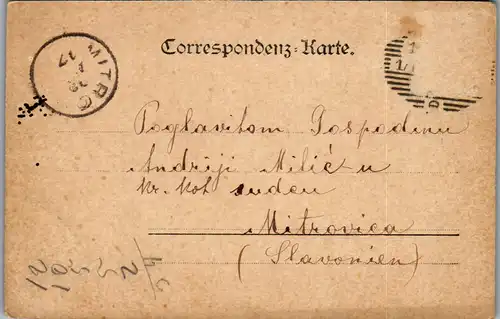 Correspondenz-Karte.
MITRO
17
Poglavitom Gospodinu
Andriji Milić u
kr. kot. sudcu
Mitrovica
(Slavonien)